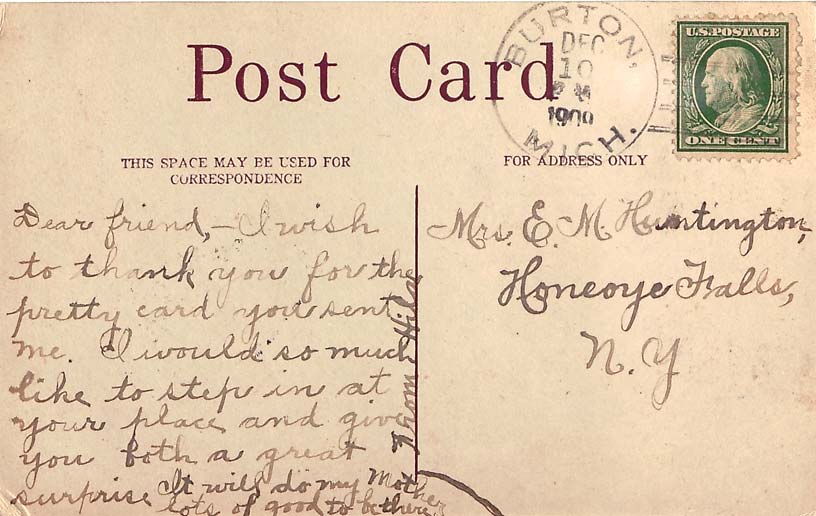 Post Card
BURTON,
DEC
10
1909
MICH.
U.S. POSTAGE
ONE CENT
THIS SPACE MAY BE USED FOR
CORRESPONDENCE
FOR ADDRESS ONLY
Dear friend,—I wish
to thank you for the
pretty card you sent
me. I would so much
like to step in at
your place and give
you both a great
surprise. It will do my Mother
lots of good to be there
from Hilda
Mrs. E. M. Huntington,
Honeoye Falls,
N. Y